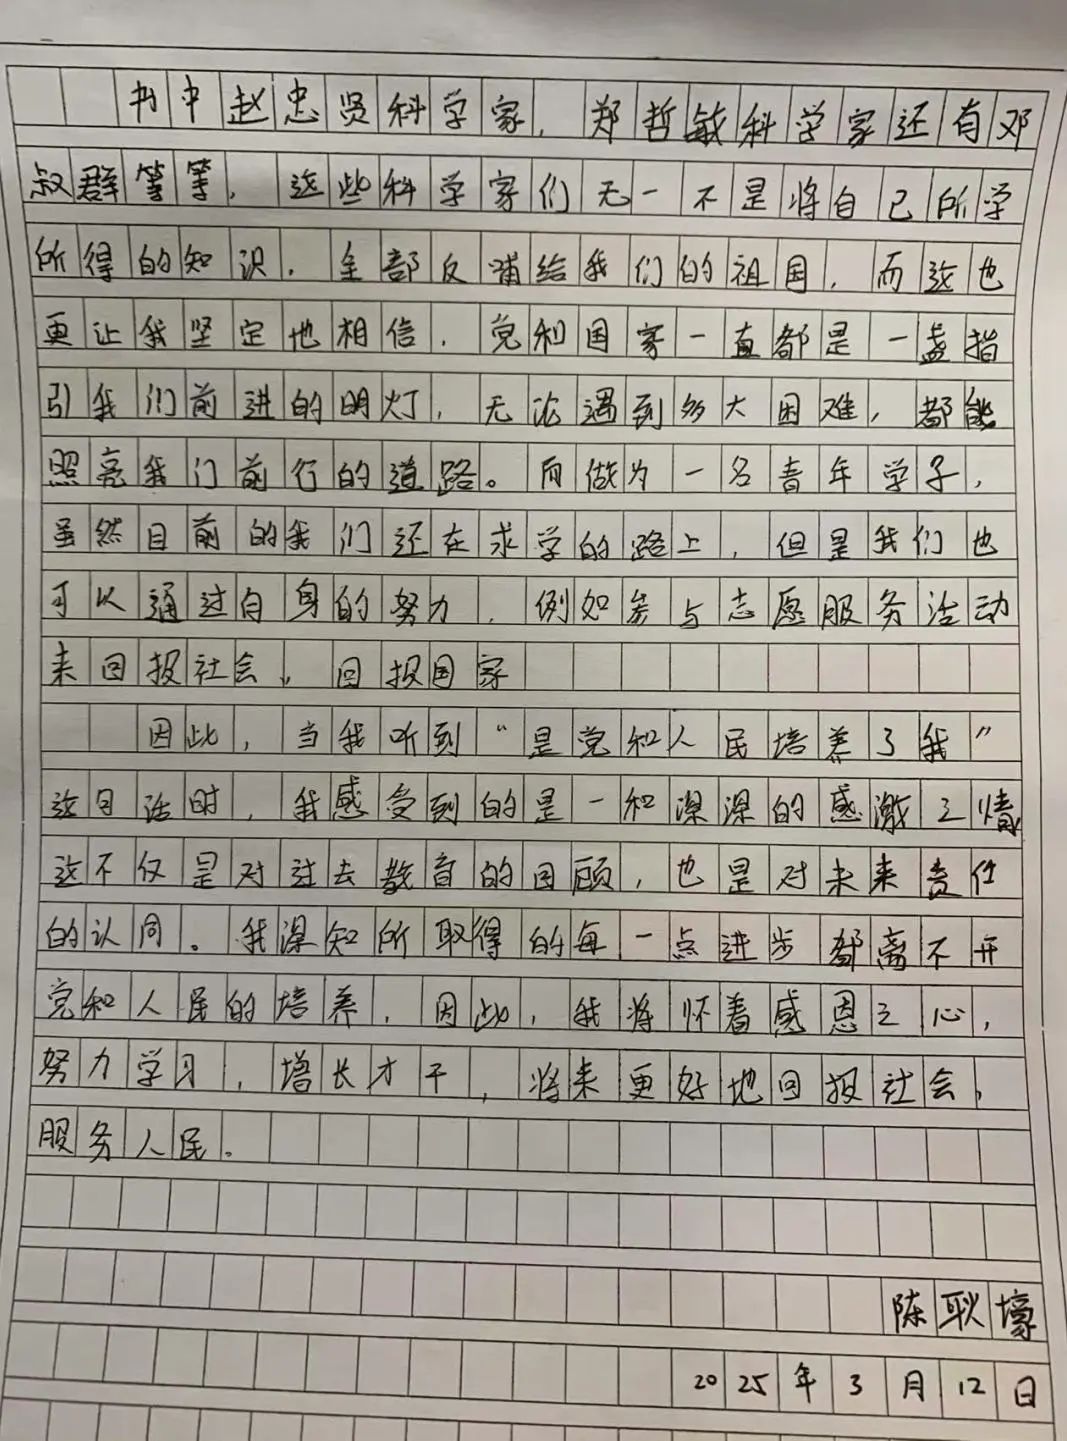 书中赵忠贤科学家，郑哲敏科学家还有邓
叔群等等，这些科学家们无一不是将自己所学
所得的知识，全部反哺给我们的祖国，而这也
更让我坚定地相信，党和国家一直都是一盏指
引我们前进的明灯，无论遇到多大困难，都能
照亮我门前行的道路。而做为一名青年学子，
虽然目前的我们还在求学的路上，但是我们也
可以通过自身的努力，例如参与志愿服务活动
来回报社会，回报国家
因此，当我听到“是党和人民培养了我”
这句话时，我感受到的是一种深深的感激之情
这不仅是对过去教育的回顾，也是对未来责任
的认同。我深知所取得的每一点进步都离不开
党和人民的培养，因此，我将怀着感恩之心，
努力学习，增长才干，将来更好地回报社会，
服务人民。
陈耿壕
2025年3月12日